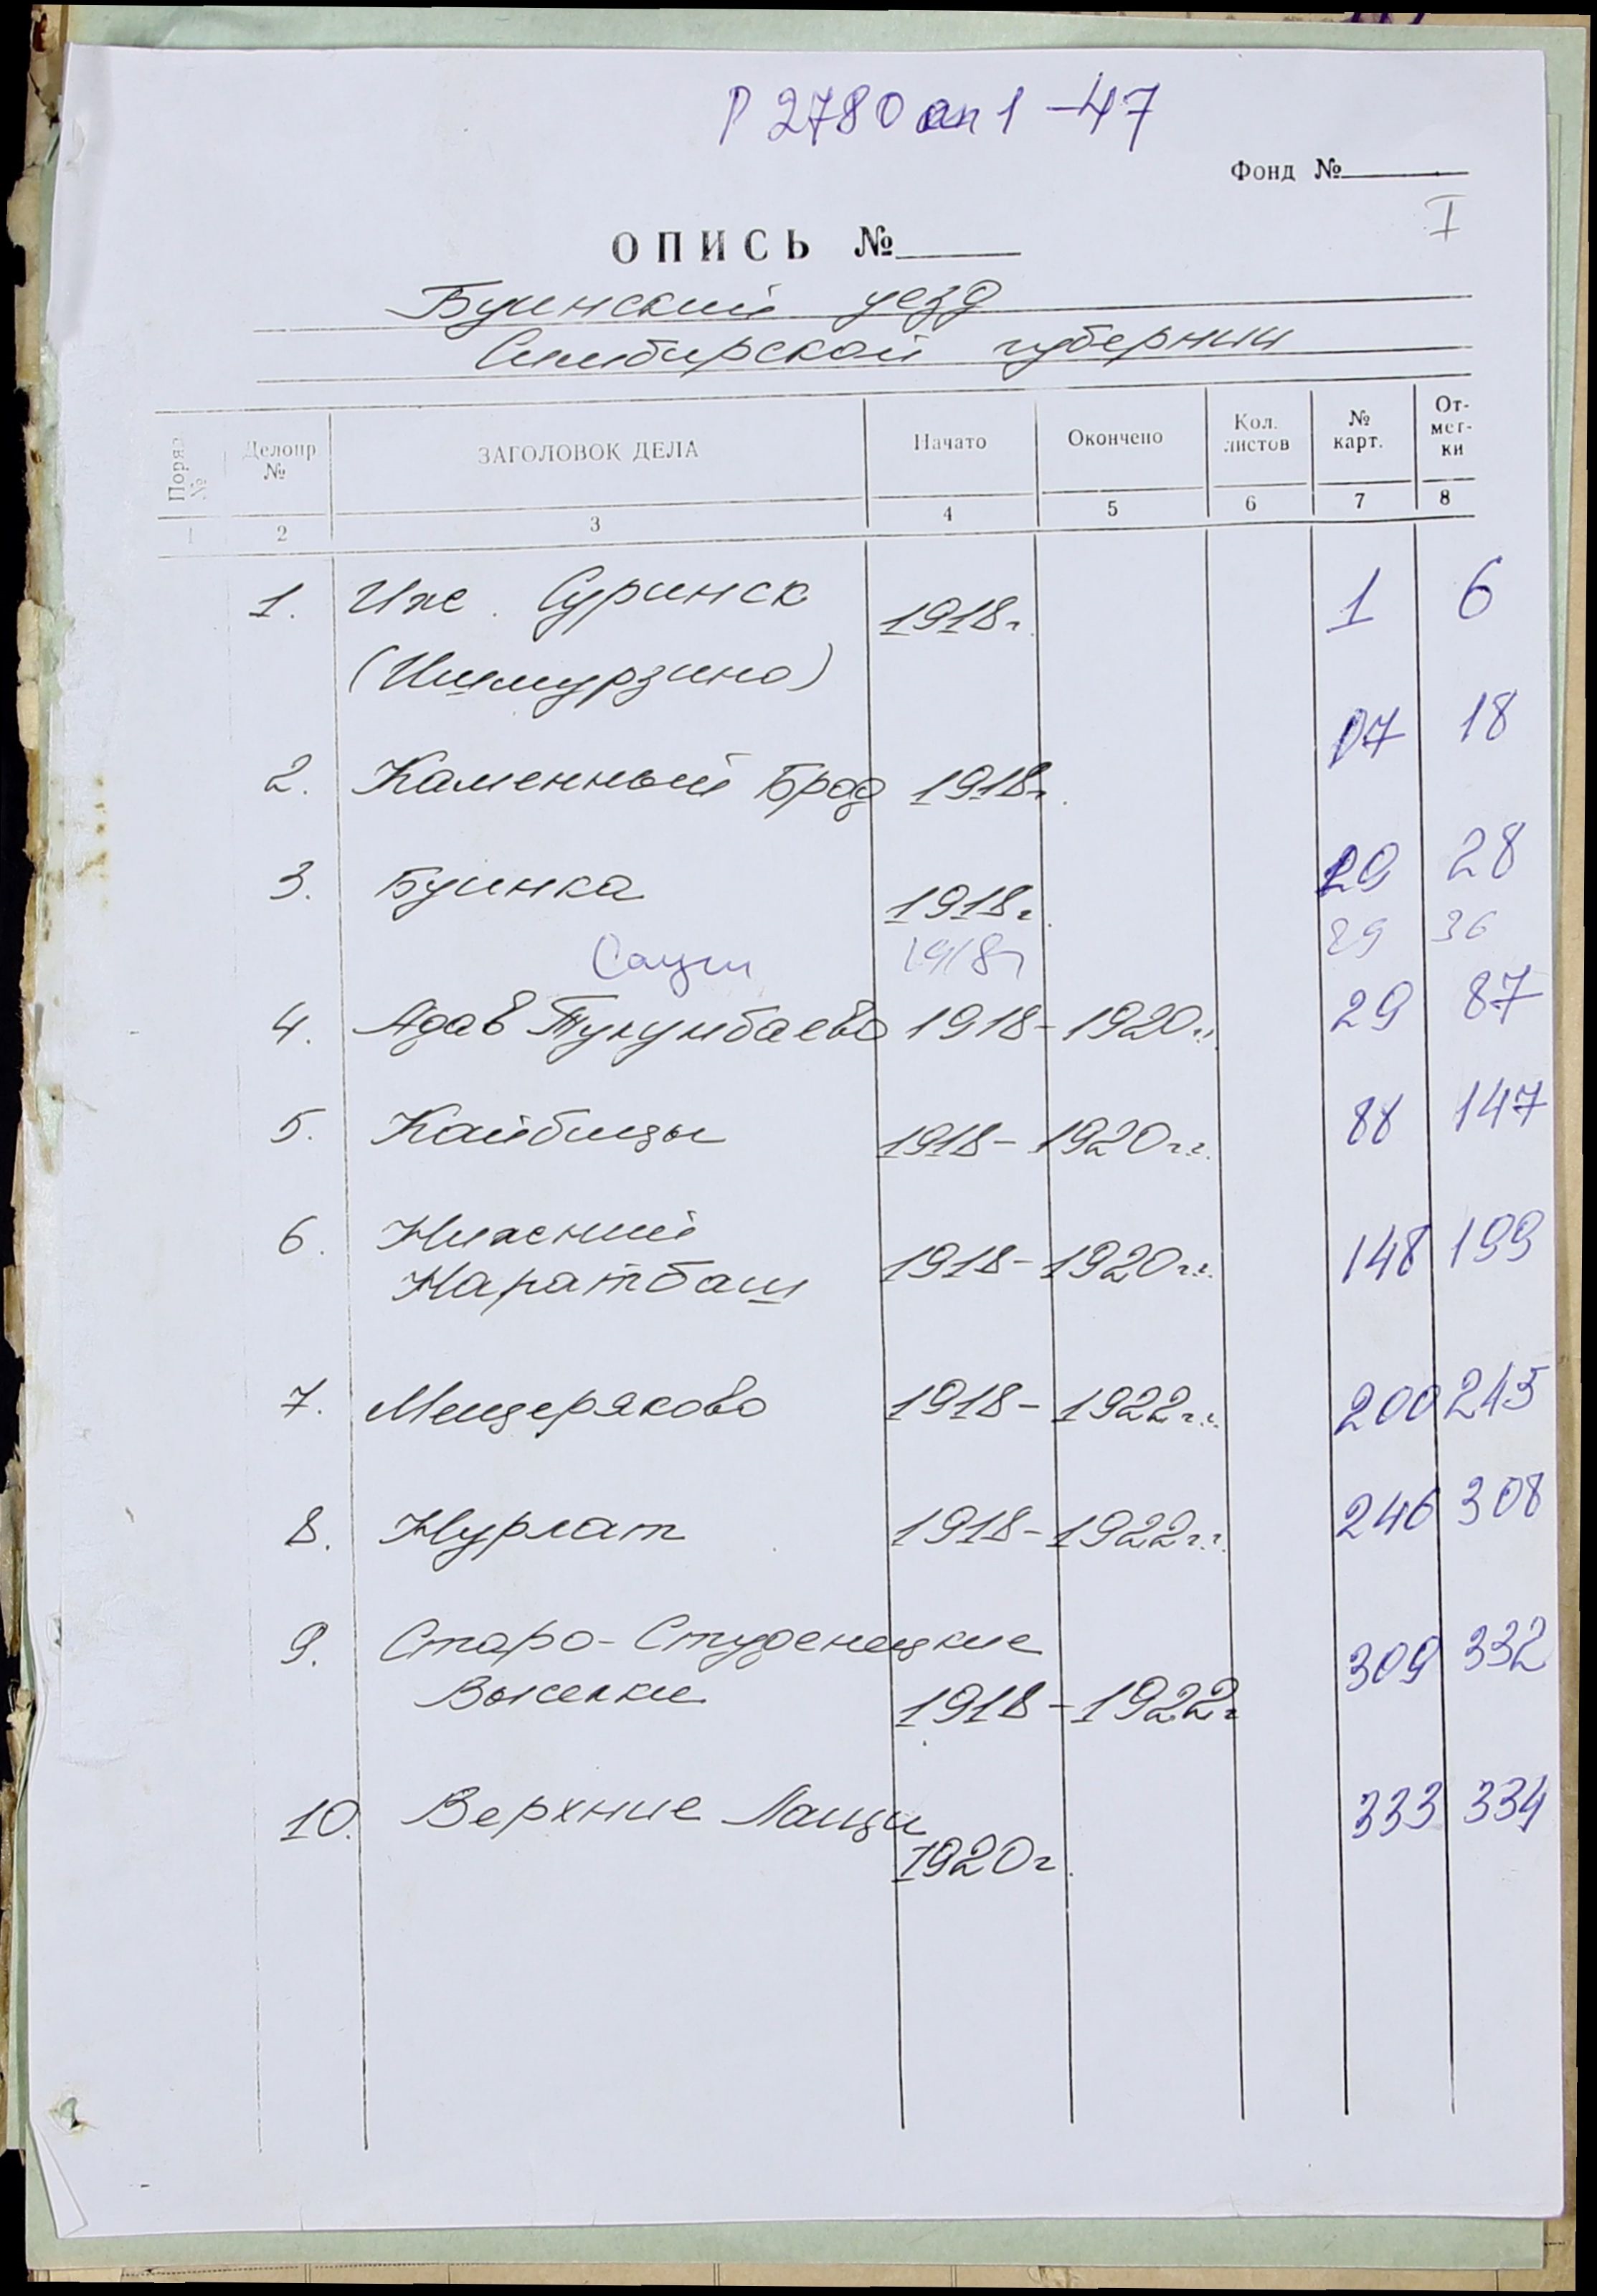 Р 2780 оп 1 – 47
Фонд №
I
ОПИСЬ №
Буинский уезд
Симбирской губернии
Поряд. № Делопр № ЗАГОЛОВОК ДЕЛА Начато Окончено Кол. листов № карт. От-мет-ки
1 2 3 4 5 6 7 8
1. Иже. Суринск 1918г. 1 6
(Ишмурзино)
07 18
2. Каменный Брод 1918г.
3. Буинка 1918г. 20 28
1918г 29 36
4. Адав Тукумбаево 1918 – 1920г.г. 29 87
5. Кайбицы 1918 – 1920г.г. 88 147
6. Нижний
Наратбаш 1918 – 1920г.г. 148 199
7. Мещеряково 1918 – 1922г.г. 200 245
8. Нурлат 1918 – 1922г.г. 246 308
9. Старо-Студенецкие 309 332
Выселки 1918 – 1922г
10. Верхние Лащи 333 334
1920г.